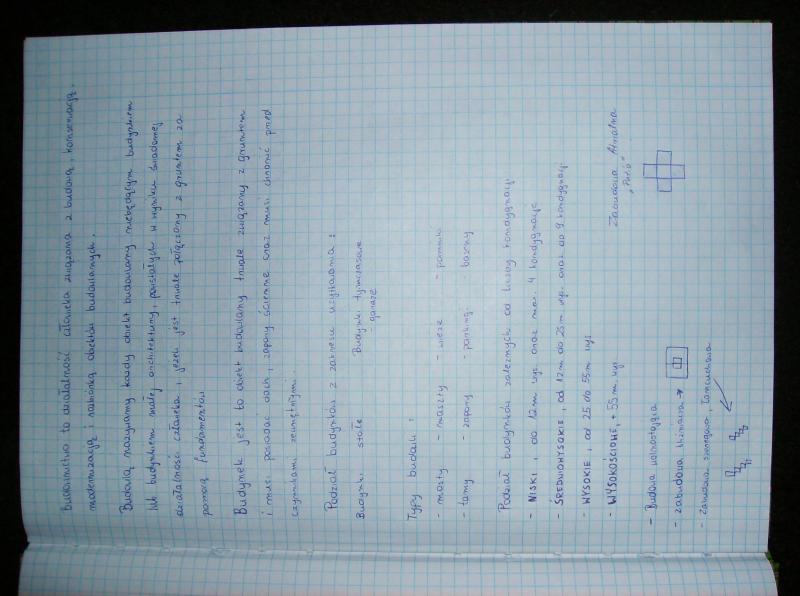 Budownictwo to działalność człowieka związana z budową, konserwacją,
modernizacją i rozbiórką obiektów budowlanych.
Budowlą nazywamy każdy obiekt budowlany niebędącym budynkiem
lub budynkiem małej architektury, powstałych w wyniku świadomej
działalności człowieka, jeżeli jest trwale połączony z gruntem za
pomocą fundamentów
Budynek jest to obiekt budowlany trwale związany z gruntem
i musi posiadać dach, zapory ścienne oraz musi chronić przed
czynnikami zewnętrznymi.
Podział budynków z zakresu użytkowania:
Budynki stałe Budynki tymczasowe
- garaże
Typy budowli:
- mosty - maszty - wieże - pomniki
- tamy - zapory - parkingi - baseny
Podział budynków zależnych od liczby kondygnacji.
- NISKI, do 12m wys. oraz max. 4 kondygnacje
- ŚREDNIOWYSOKIE, od 12m do 25m wys. oraz do 9 kondygnacji
- WYSOKIE, od 25 do 55m wys
- WYSOKOŚCIOWE, + 55m wys
- Budowa wolnostojąca
- Zabudowa bliźniacza →
- Zabudowa szeregowa, łańcuchowa
Zabudowa Atrialna
"Patio"